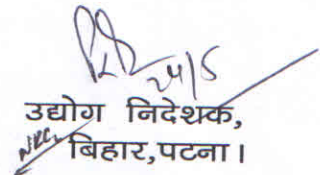 24/5
उद्योग निदेशक,
बिहार,पटना।